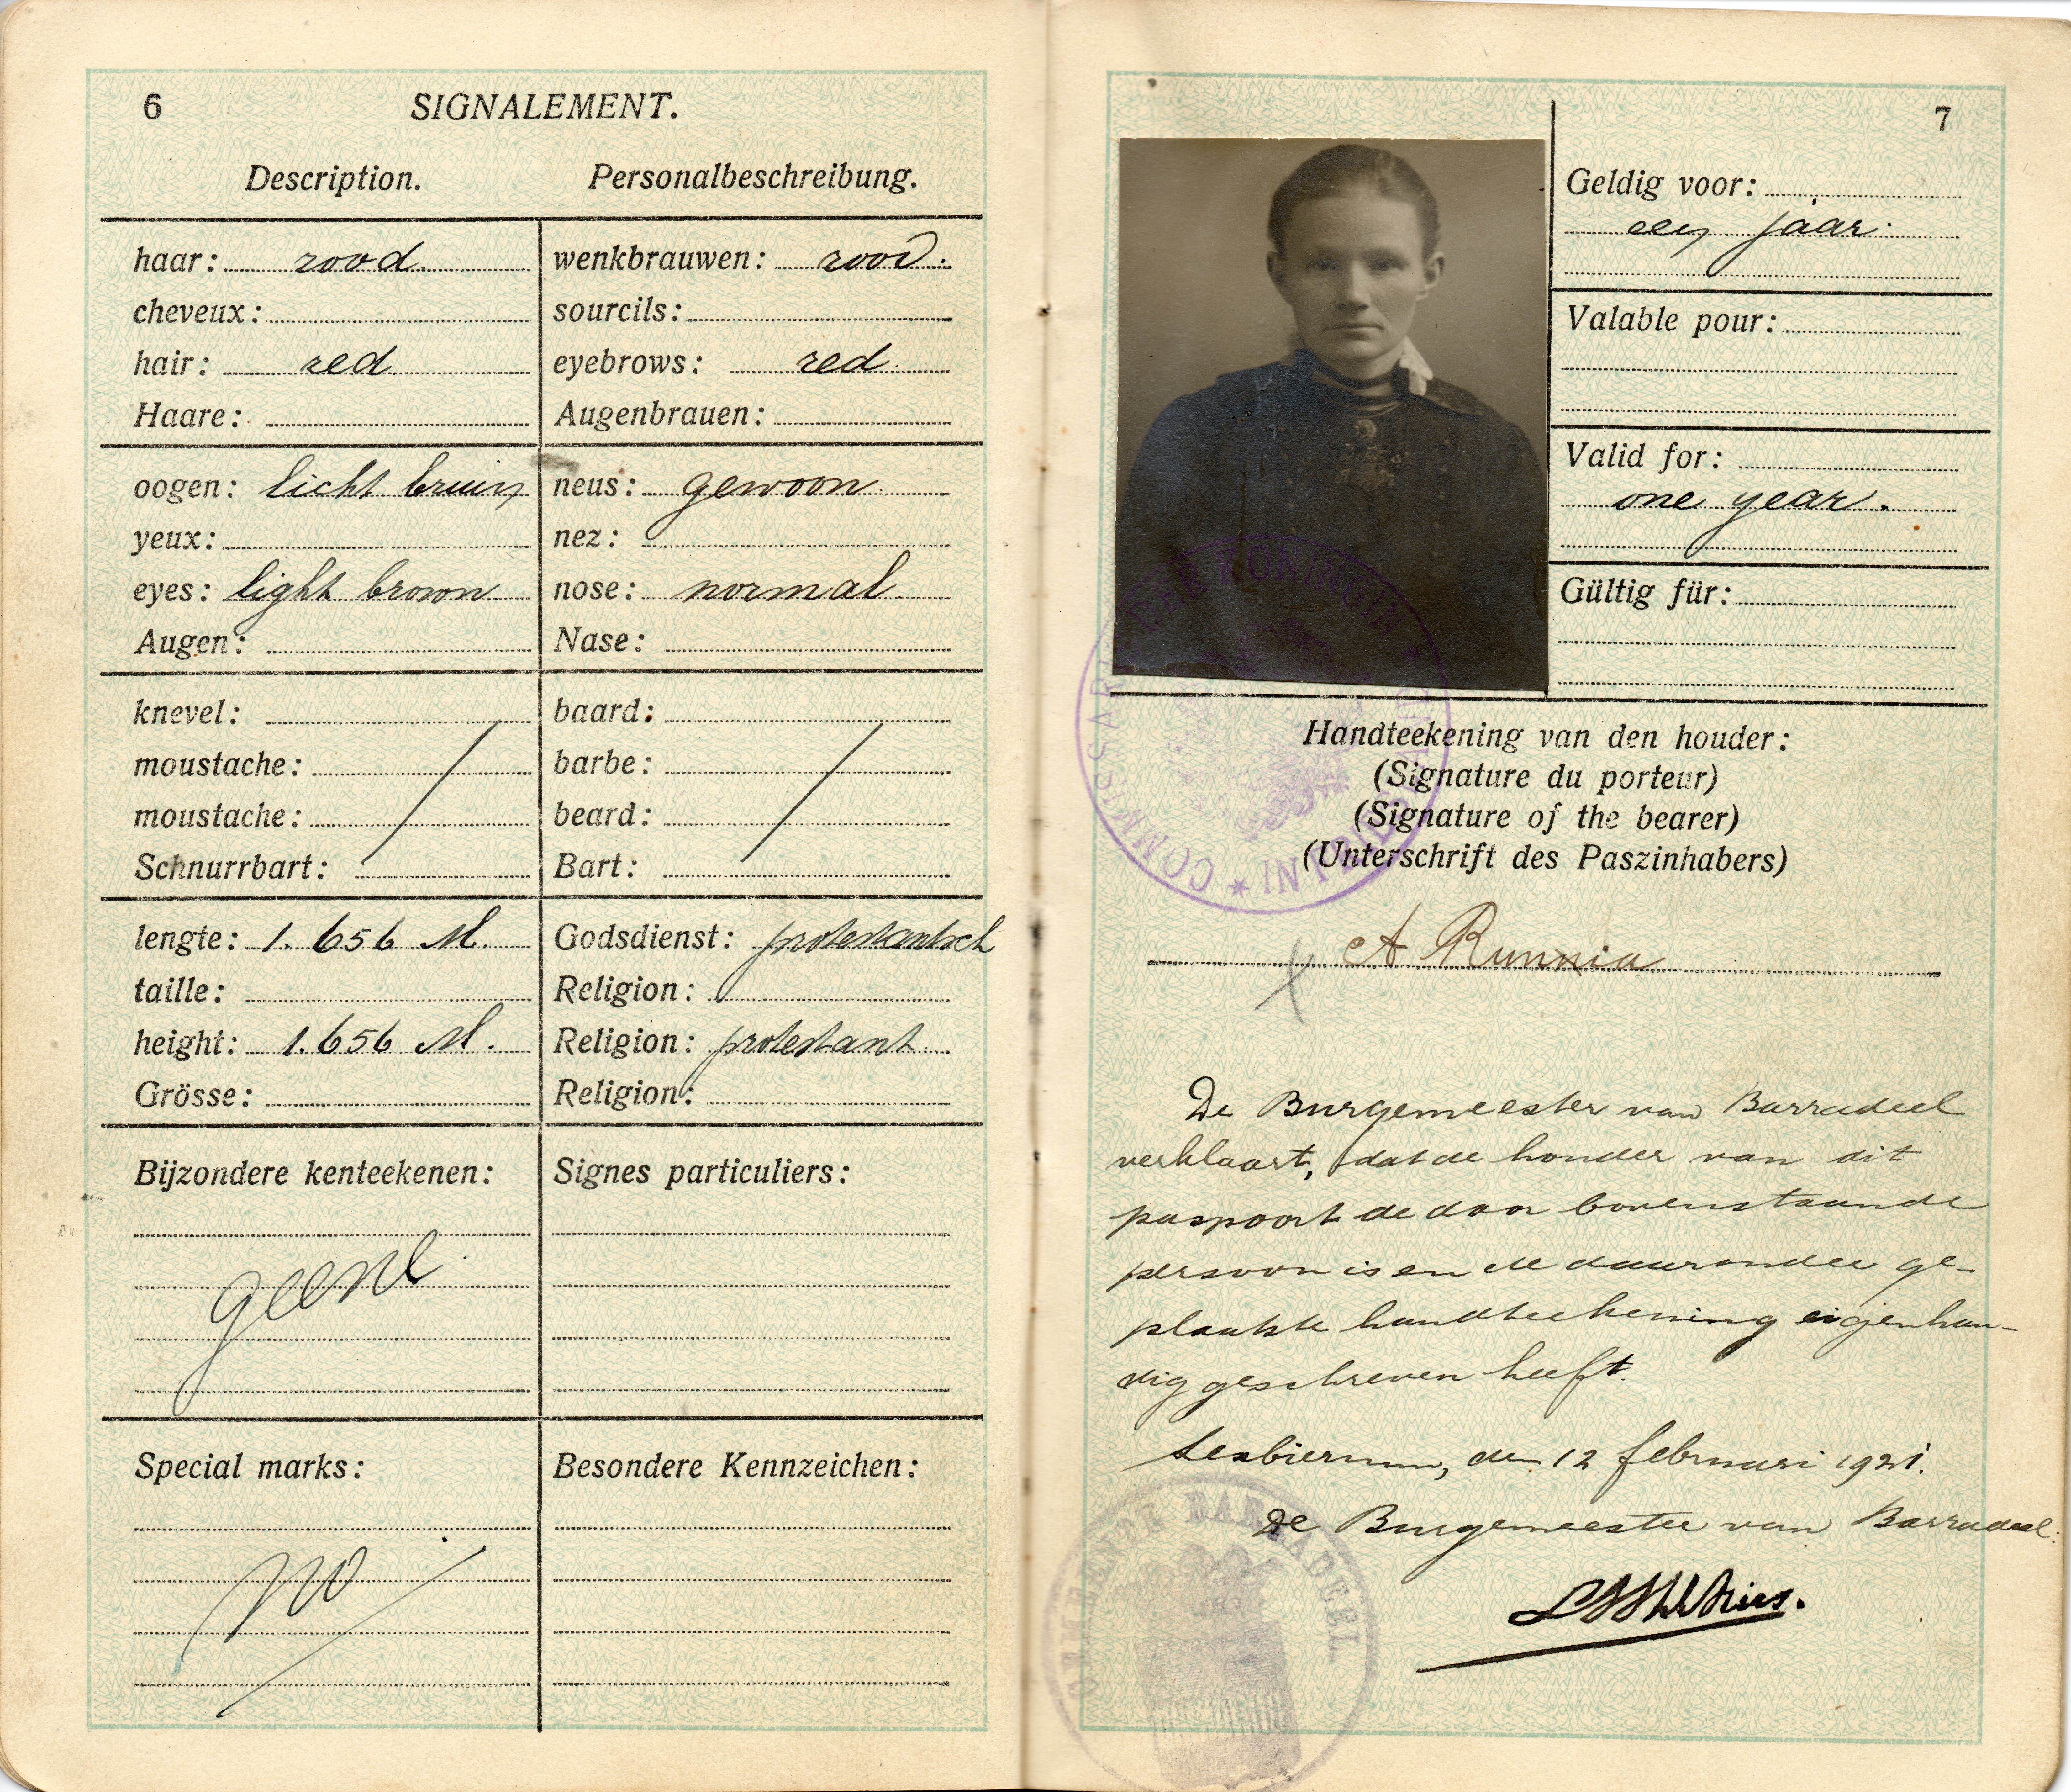 6
SIGNALEMENT.
Description. Personalbeschreibung.
haar: rood
cheveux:
hair: red
Haare:
wenkbrauwen: rood.
sourcils:
eyebrows: red
Augenbrauen:
oogen: licht bruin
yeux:
eyes: light brown
Augen:
neus: gewoon
nez:
nose: normal
Nase:
knevel:
moustache:
moustache:
Schnurrbart:
baard:
barbe:
beard:
Bart:
lengte: 1.656 M.
taille:
height: 1.656 M.
Grösse:
Godsdienst: protestantsch
Religion:
Religion: protestant
Religion:
Bijzondere kenteekenen:
geene
Signes particuliers:
Special marks:
no
Besondere Kennzeichen:
7
Geldig voor:
een jaar.
Valable pour:
Valid for:
one year.
Gültig für:
Handteekening van den houder:
(Signature du porteur)
(Signature of the bearer)
(Unterschrift des Paszinhabers)
A Runnia
De Burgemeester van Barradeel
verklaart, dat de houder van dit
paspoort de door bovenstaande
persoon is en de daaronder ge-
plaatste handteekening eigenhan-
dig geschreven heeft.
Sexbierum, den 12 februari 1921.
De Burgemeester van Barradeel.
GEMEENTE BARRADEEL